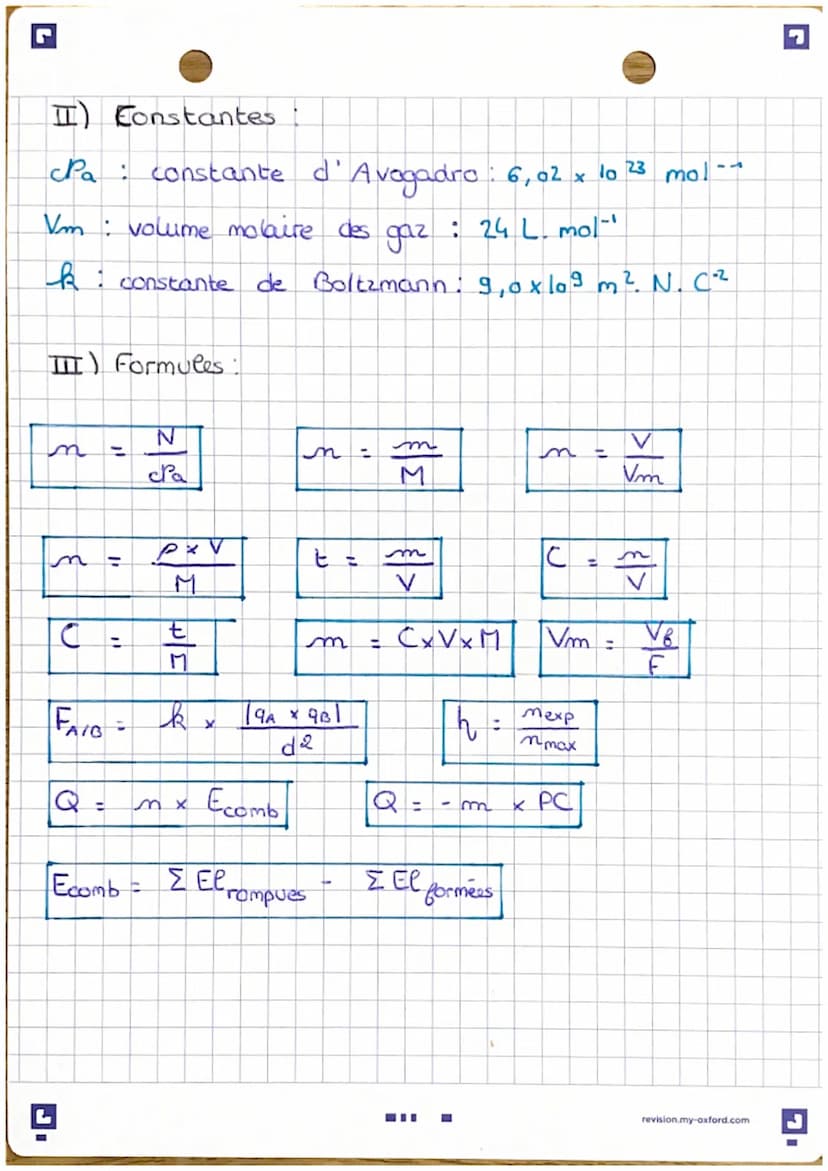 II) Constantes :
cPa : constante d'Avogadro : 6,02 x 10²³ mol⁻¹
Vm : volume molaire des gaz : 24 L. mol⁻¹
k : constante de Boltzmann : 9,0 x 10⁹ m². N. C⁻²
III) Formules :
n = N / cPa    n = m / M    n = V / Vm
n = ρ x V / M    t = m / V    C = n / V
C = t / M    m = C x V x M    Vm = Vβ / F
F A/B = k x |qA x qB| / d²    h = nexp / nmax
Q = n x Ecomb    Q = - m x PC
Ecomb = Σ El rompues - Σ El formées
revision.my-oxford.com